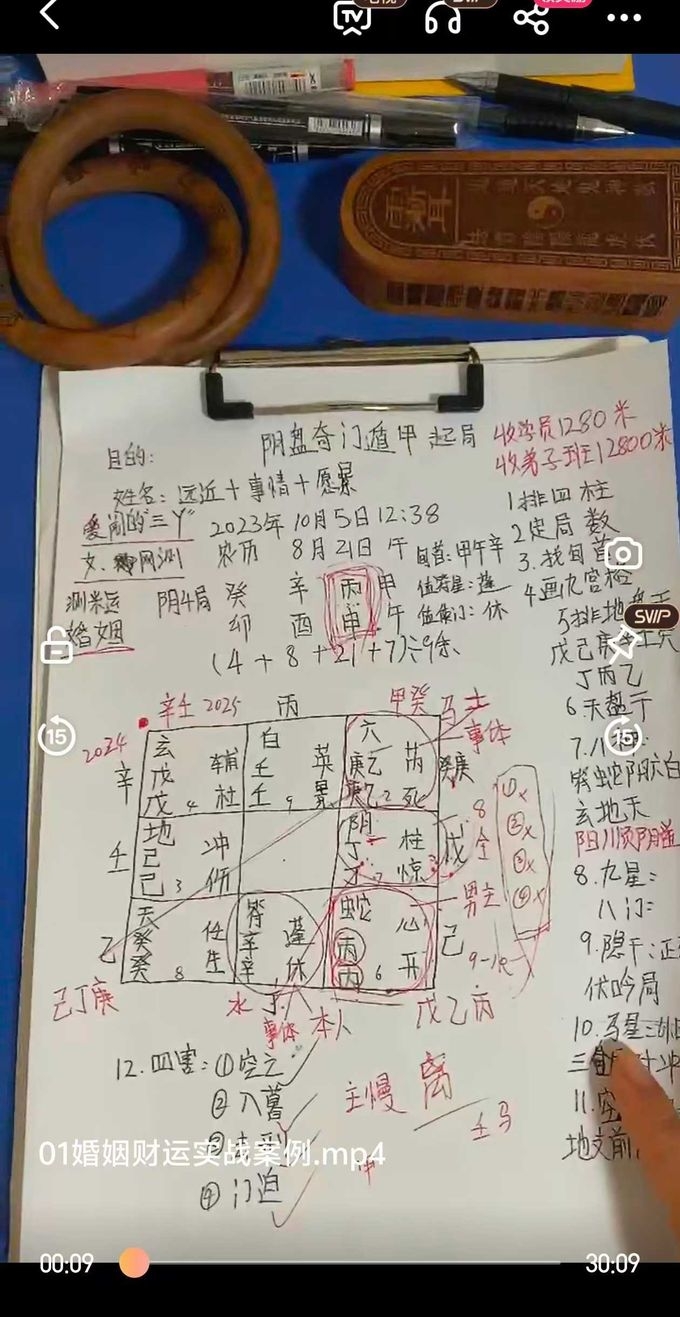 TV
SVIP
阴盘奇门遁甲起局
收学员1280米
收弟子班12800米
目的:
姓名: 远近十事情十愿景
爱闹的"三丫"
2023年10月5日12:38
女、网测
农历 8月21日 午
旬首:甲午辛
测米运
婚姻
阴4局
癸 辛 丙 甲
卯 酉 申 午
值符星:蓬
值使门:休
(4+8+21+7)÷9余
1排四柱
2定局数
3.找旬首
4画九宫格
5排地盘干
戊己庚辛壬癸
丁丙乙
6.天盘干
7.八神:
符蛇阴六白
玄地天
8.九星:
八门:
9.隐干:
伏吟局
10.马星三
11.空
地支前
辛壬 2025
丙
甲癸 马
2024
辛
玄
戊 辅
戊 4 柱
白
壬 英
壬 9 景
六
庚乙 芮
庚乙 2 死
事体
癸庚
壬
地
己 冲
己 3 伤
阴
丁 柱
丁 7 惊
戊
8
己
天
癸 任
癸 8 生
符
辛 蓬
辛 1 休
蛇
丙 心
丙 6 开
己
男主
①×
②×
③×
④×
己丁庚
水
丁
事体
本人
戊乙丙
12.四害:①空亡
②入暮
④门迫
主慢 离
壬马
冲
SVIP
15
15
01婚姻财运实战案例.mp4
00:09
30:09